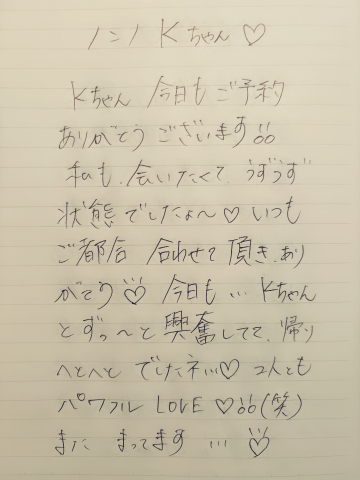 ノンノ Kちゃん ♡
Kちゃん 今日も ご予約
ありがとう ございます
私も、会いたくて、うずうず
状態でしたょ〜♡ いつも
ご都合 合わせて 頂き、あり
がとう♡ 今日も … Kちゃん
とずっ〜と 興奮してて、帰り
へとへと でしたネ…♡ 2人とも
パワフル LOVE ♡(笑)
また まってます … ♡